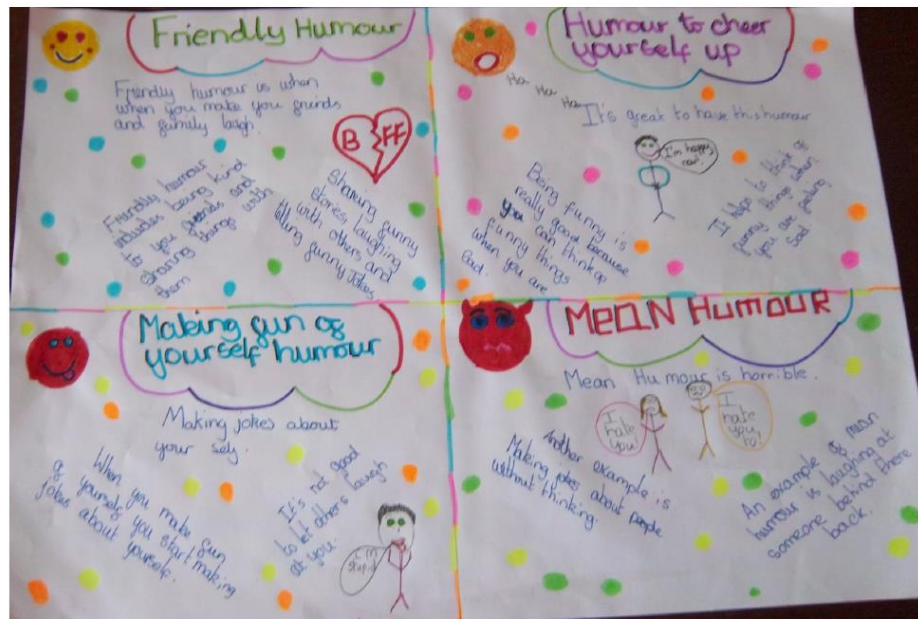 Friendly Humour
Friendly humour is when
when you make you friends
and family laugh.
B FF
Friendly humour
includes being kind
to you friends and
sharing things with
them
Sharing funny
stories, laughing
with others and
telling funny jokes
Humour to cheer
yourself up
Ha Ha Ha
It's great to have this humour
I'm happy
now!
Being funny is
really good because
you can think up
funny things
when you are
Sad.
It helps to think of
funny things when
you are feeling
Sad
Making fun of
yourself humour
Making jokes about
your self.
When you make fun
of yourself you start making
jokes about yourself.
It's not good
to let others laugh
at you.
I'm
stupid
MEAN HUMOUR
Mean Humour is horrible.
I
hate
you!
I
hate
you
to!
Another example is
Making jokes about people
without thinking.
An example of mean
humour is laughing at
someone behind there
back.